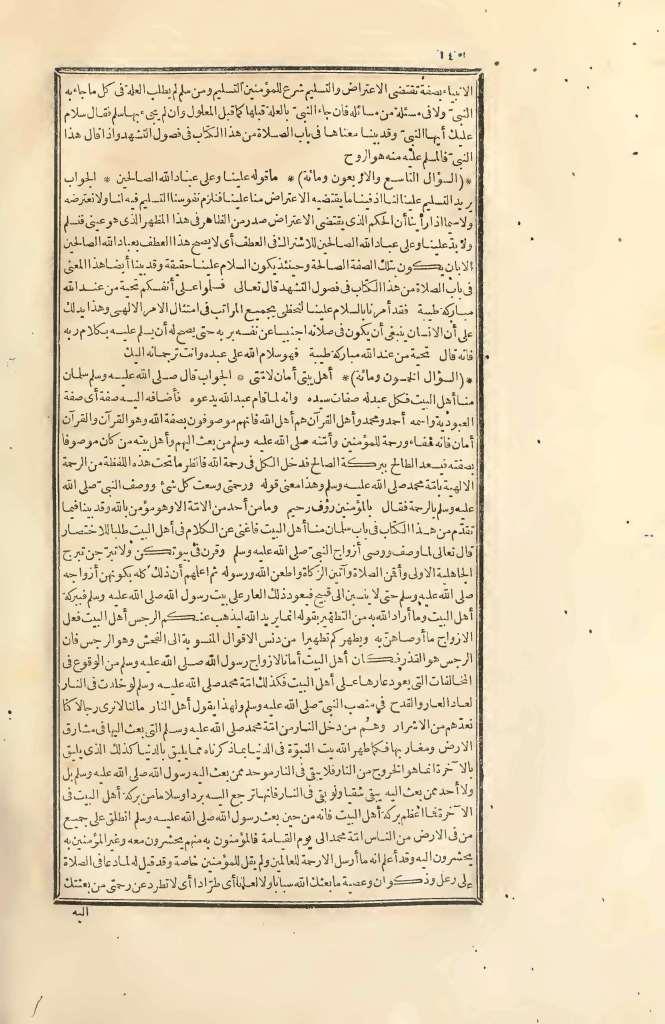 ١٤٠
الانبياء بصفة تقتضى الاعتراض والتسليم شرع للمؤمنين التسليم ومن سلم لم يطلب العلة فى كل ما جاء به
النبىّ ولا فى مسئلة من مسائله فان جاء النبىّ بالعلة قبلها كما قبل المعلول وان لم يجىء بها سلم فقال سلام
عليك أيها النبىّ وقد بينا معناها فى باب الصلاة من هذا الكتاب فى فصول التشهد واذا قال هذا
النبىّ فالمسلم عليه منه هو الروح
*(السؤال التاسع والاربعون ومائة)* ما قوله علينا وعلى عباد الله الصالحين * الجواب
يريد التسليم علينا لنا اذ فينا ما يقتضيه الاعتراض منا علينا فنلزم نفوسنا التسليم فيه لنا ولا نعترضه
ولا سيما اذا رأينا أن الحكم الذى يقتضى الاعتراض صدر من الظاهر فى هذا المظهر الذى هو عينى فنسلم
ولا بدّ علينا وعلى عباد الله الصالحين للاشتراك فى العطف أى لا يصح هذا العطف بعباد الله الصالحين
الا بان يكون بتلك الصفة الصالحة وحينئذ يكون السلام علينا حقيقة وقد بينا أيضا هذا المعنى
فى باب الصلاة من هذا الكتاب فى فصول التشهد قال تعالى فسلموا على أنفسكم تحية من عند الله
مباركة طيبة فقد أمرنا بالسلام علينا لنحظى بجميع المراتب فى امتثال الامر الالهى وهذا يدلك
على أن الانسان ينبغى أن يكون فى صلاته أجنبيا عن نفسه بربه حتى يصح له أن يسلم عليه بكلام ربه
فانه قال تحية من عند الله مباركة طيبة فهو سلام الله على عبده وأنت ترجمانه اليك
*(السؤال الخمسون ومائة)* أهل بيتى أمان لامّتى * الجواب قال صلى الله عليه وسلم سلمان
منا أهل البيت فكل عبد له صفات سيده وانه لما قام عبد الله يدعوه فأضافه اليه صفة أى صفة
العبودية واسمه أحمد ومحمد وأهل القرآن هم أهل الله فانهم موصوفون بصفة الله وهو القرآن والقرآن
أمان فانه شفاء ورحمة للمؤمنين وأمّته صلى الله عليه وسلم من بعث اليهم وأهل بيته من كان موصوفا
بصفته فيسعد الطالح ببركة الصالح فدخل الكل فى رحمة الله فانظر ما تحت هذه اللفظة من الرحمة
الالهية بامّة محمد صلى الله عليه وسلم وهذا معنى قوله ورحمتى وسعت كل شئ ووصف النبىّ صلى الله
عليه وسلم بالرحمة فقال بالمؤمنين رؤف رحيم وما من أحد من الامّة الا وهو مؤمن بالله وقد بينا فيما
تقدّم من هذا الكتاب فى باب سلمان منا أهل البيت فاغنى عن الكلام فى أهل البيت طلبا للاختصار
قال تعالى لما وصف ووصى أزواج النبىّ صلى الله عليه وسلم وقرن فى بيوتكن ولا تبرّجن تبرج
الجاهلية الاولى وأقمن الصلاة وآتين الزكاة وأطعن الله ورسوله ثم اعلمهم أن ذلك كله بكونهن أزواجه
صلى الله عليه وسلم حتى لا ينسبن الى قبيح فيعود ذلك العار على بيت رسول الله صلى الله عليه وسلم فببركة
أهل البيت وما أراد الله به من التطهير بقوله انما يريد الله ليذهب عنكم الرجس أهل البيت فعل
الازواج ما أوصاهنّ به ويطهركم تطهيرا من دنس الاقوال المنسوبة الى الفحش وهو الرجس فان
الرجس هو القذر فكان أهل البيت أمانا لازواج رسول الله صلى الله عليه وسلم من الوقوع فى
المخالفات التى يعود عارها على أهل البيت فكذلك امّة محمد صلى الله عليه وسلم لو خلدت فى النار
لعاد العار والقدح فى منصب النبىّ صلى الله عليه وسلم ولهذا يقول أهل النار مالنا لا نرى رجالا كنا
نعدّهم من الاشرار وهُم من دخل النار من امّة محمد صلى الله عليه وسلم التى بعث اليها فى مشارق
الارض ومغاربها فكما طهر الله بيت النبوّة فى الدنيا بما ذكرناه مما يليق بالدنيا كذلك الذى يليق
بالآخرة انما هو الخروج من النار فلا يبقى فى النار موحد ممن بعث اليه رسول الله صلى الله عليه وسلم بل
ولا أحد ممن بعث اليه يبقى شقيا ولو بقى فى النار فانها ترجع اليه بردا وسلاما من بركة أهل البيت فى
الآخرة فما أعظم بركة أهل البيت فانه من حين بعث رسول الله صلى الله عليه وسلم انطلق على جميع
من فى الارض من الناس امّة محمد الى يوم القيامة فالمؤمنون به منهم يحشرون معه وغير المؤمنين به
يحشرون اليه وقد أعلم انه ما أرسل الا رحمة للعالمين ولم يقل للمؤمنين خاصة وقد قيل له لما دعا فى الصلاة
على رعل وذكوان وعصية ما بعثك الله سبابا ولا لعانا أى طرّادا أى لا تطرد عن رحمتى من بعثتك
اليه